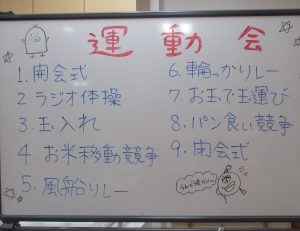 運動会
1. 開会式
2. ラジオ体操
3. 玉入れ
4. お米移動競争
5. 風船リレー
6. 輪っかリレー
7. お玉で玉運び
8. パン食い競争
9. 閉会式